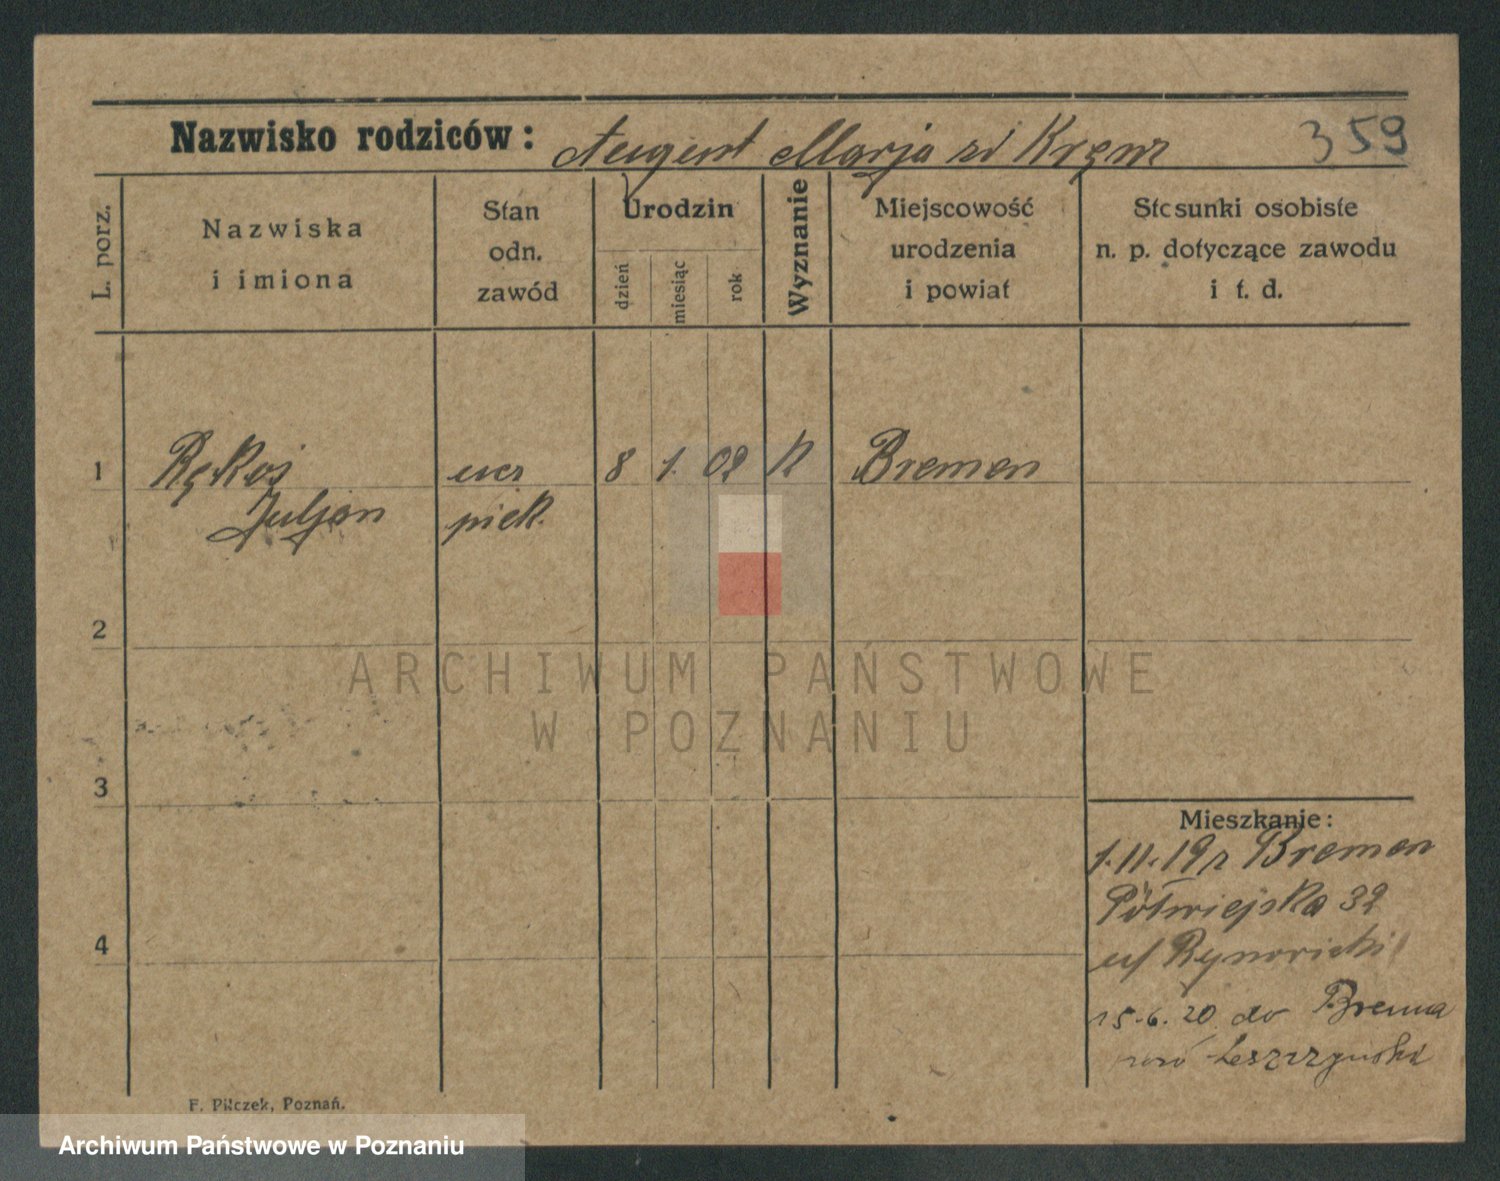 359
Nazwisko rodziców: August Marja zd Kręnz
L. porz.
Nazwiska
i imiona
Stan
odn.
zawód
Urodzin
dzień
miesiąc
rok
Wyznanie
Miejscowość
urodzenia
i powiat
Stosunki osobiste
n. p. dotyczące zawodu
i t. d.
1 Rękoś ucz 8 1. 02 K Bremen
Juljan piek.
2
3
4
Mieszkanie:
1.11.19 z Bremen
Półwiejska 32
u/
15.6.20 do Brenna
Leszczyński
F. Pilczek, Poznań.
ARCHIWUM PAŃSTWOWE
W POZNANIU
Archiwum Państwowe w Poznaniu